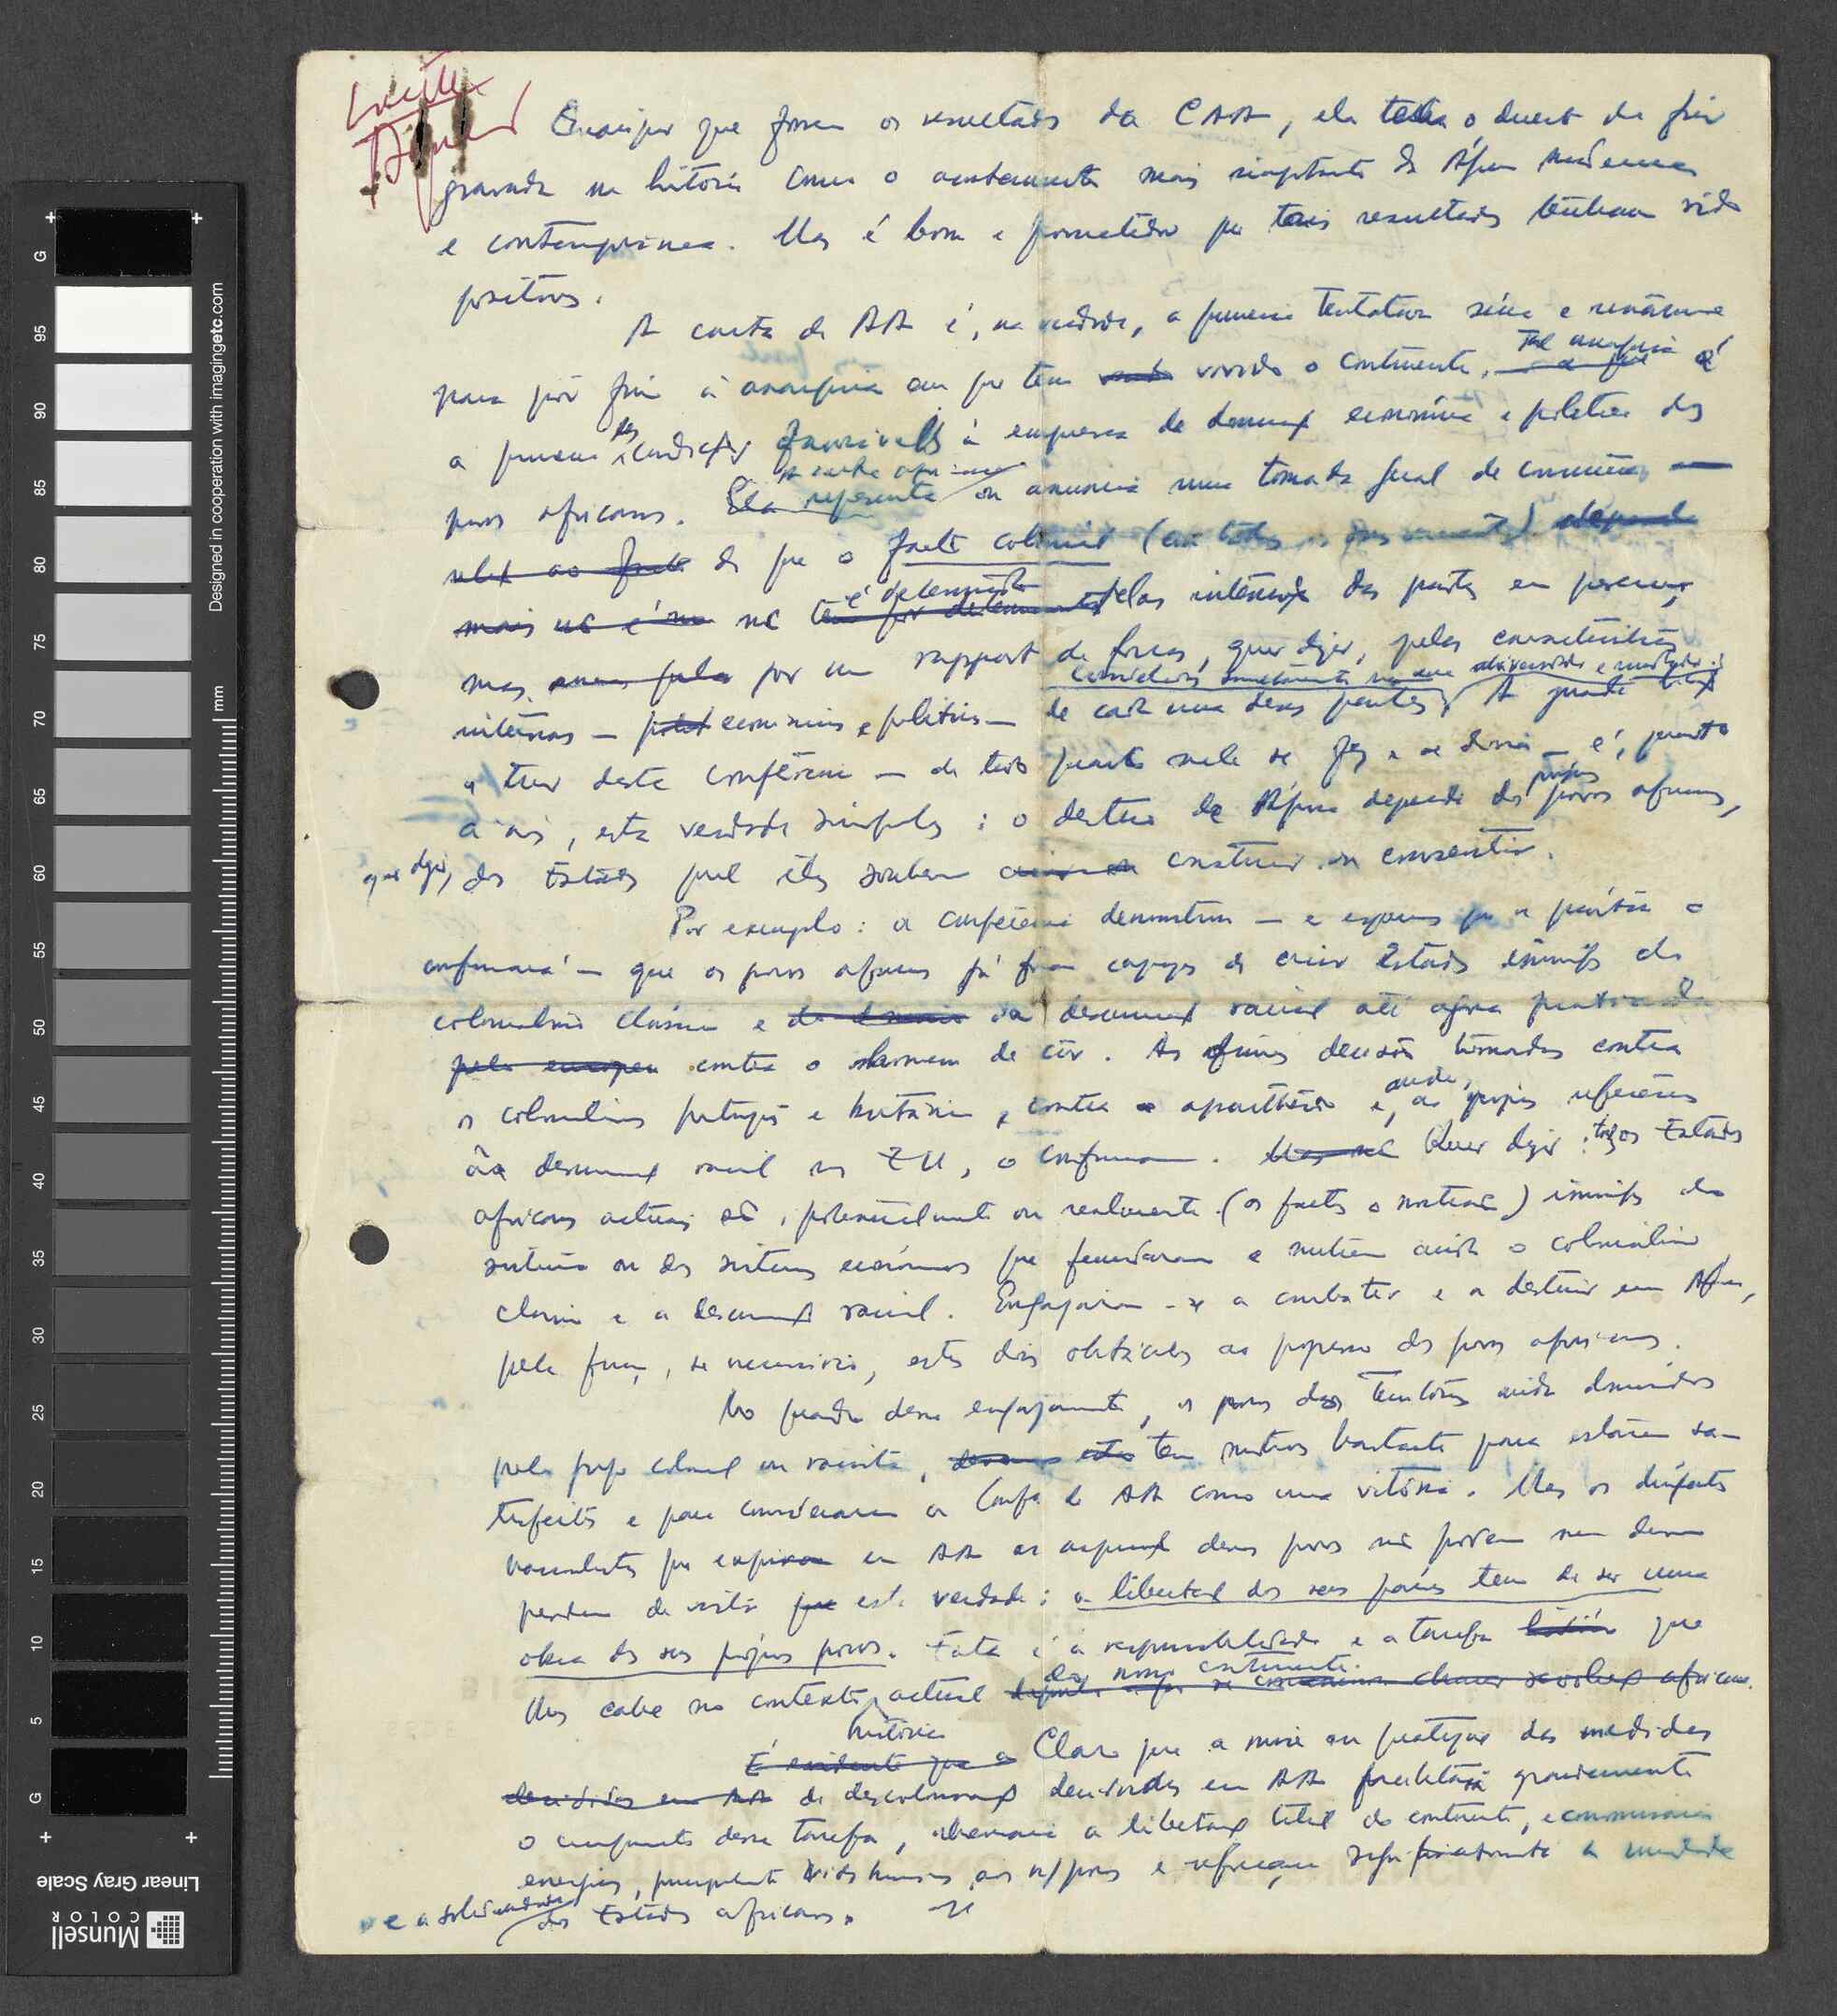 que fossem os resultados da CAA, ela o direito de ficar
gravada na história como o acontecimento mais importante da África moderna
e contemporânea. Mas é bom e prometedor que tais resultados tenham sido
positivos.
A carta de AA é, na verdade, a primeira tentativa séria e unânime
para pôr fim à anarquia em que tem vivido o continente. Tal anarquia é
a primeira das condições favoráveis à empresa de dominação económica e política dos
povos africanos. A carta africana representa ou anuncia uma tomada geral de consciência
de que o facto colonial
é determinado pelas intenções das partes em presença,
mas por um rapport de forças, quer dizer, pelas características
internas — económicas e políticas — de cada uma dessas partes, A grande lição
a tirar desta conferência — de tudo quanto nela se fez e se disse — é, quanto
a nós, esta verdade simples: o destino de África depende dos próprios povos africanos,
quer dizer, dos Estados que eles souberem construir ou consentir.
Por exemplo: a conferência demonstrou — e esperamos que a prática o
confirmará — que os povos africanos já foram capazes de criar Estados inimigos do
colonialismo clássico e da descriminação racial até agora praticada
contra o homem de côr. As firmes decisões tomadas contra
o colonialismo português e britânico, contra o apartheid e, ainda, as próprias referências
à descriminação racial nos EU, o confirmam. Quer dizer: todos os Estados
africanos actuais são, potencialmente ou realmente (os factos o mostrarão) inimigos do
sistema ou dos sistemas económicos que fecundaram e nutrem ainda o colonialismo
clássico e a descriminação racial. Engajaram-se a combater e a destruir em África,
pela força, se necessário, estes dois obstáculos ao progresso dos povos africanos.
No quadro desse engajamento, os povos dos territórios ainda dominados
pelo jugo colonial ou racista, tem motivos bastante para estarem sa-
tisfeitos e para considerarem a Confª de AA como uma vitória. Mas os dirigentes
nacionalistas que em AA as aspirações desses povos não podem nem devem
perder de vista esta verdade: a libertação dos seus países tem de ser uma
obra dos seus próprios povos. Esta é a responsabilidade e a tarefa que
lhes cabe no contexto histórico actual do nosso continente.
Claro que a mise en pratique das medidas
de descolonização decididas em AA facilitará grandemente
o cumprimento dessa tarefa, a libertação total do continente, economisará
energias, principalmente vidas humanas, aos n/povos e reforçará significativamente a unidade
e a solidariedade dos Estados africanos.
Linear Gray Scale
Munsell
COLOR
Designed in cooperation with imagingetc.com
mm
G
95
90
85
80
75
70
65
60
55
50
45
40
35
30
25
20
15
10
5
G